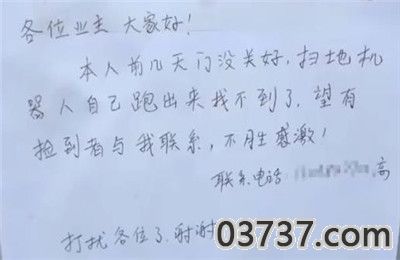 各位业主 大家好!
本人前几天门没关好,扫地机
器人自己跑出来找不到了,望有
捡到者与我联系,不胜感激!
联系电话 高
打扰各位了,谢谢
03737.com